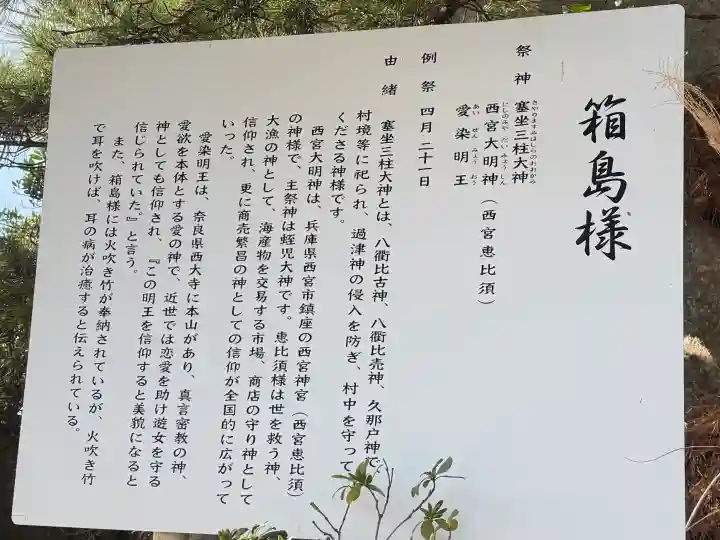 箱島様
祭神 塞坐三柱大神
西宮大明神（西宮恵比須）
愛染明王
例祭 四月二十一日
由緒 塞坐三柱大神とは、八衢比古神、八衢比売神、久那戸神で、
村境等に祀られ、過津神の侵入を防ぎ、村中を守って
くださる神様です。
西宮大明神は、兵庫県西宮市鎮座の西宮神宮（西宮恵比須）
の神様で、主祭神は蛭児大神です。恵比須様は世を救う神、
大漁の神として、海産物を交易する市場、商店の守り神として
信仰され、更に商売繁昌の神としての信仰が全国的に広がって
いった。
愛染明王は、奈良県西大寺に本山があり、真言密教の神、
愛欲を本体とする愛の神で、近世では恋愛を助け遊女を守る
神としても信仰され、『この明王を信仰すると美貌になると
信じられていた。』と言う。
また、箱島様には火吹き竹が奉納されているが、火吹き竹
で耳を吹けば、耳の病が治癒すると伝えられている。